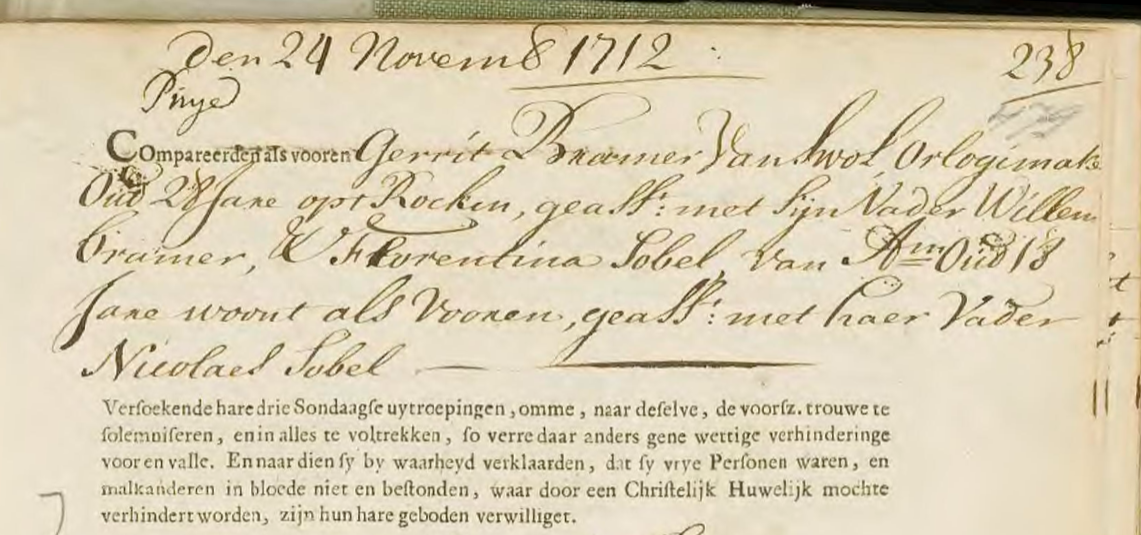 Den 24 Novem8 1712 238
Puye
COmpareerden als vooren Gerrit Bramer Van Swol Orlogimak
Oud 28 Jare opt Rockin, geasst: met sijn Vader Willem
bramer, & Florentina Sobel, van Am Oud 18
Jare woont als Vooren, geasst: met haer Vader
Nicolaes Sobel
Verſoekende hare drie Sondaagſe uytroepingen, omme, naar deſelve, de voorſz. trouwe te
ſolemniſeren, en in alles te voltrekken, ſo verre daar anders gene wettige verhinderinge
voor en valle. En naar dien ſy by waarheyd verklaarden, dat ſy vrye Perſonen waren, en
malkanderen in bloede niet en beſtonden, waar door een Chriſtelijk Huwelijk mochte
verhindert worden, zijn hun hare geboden verwilliget.